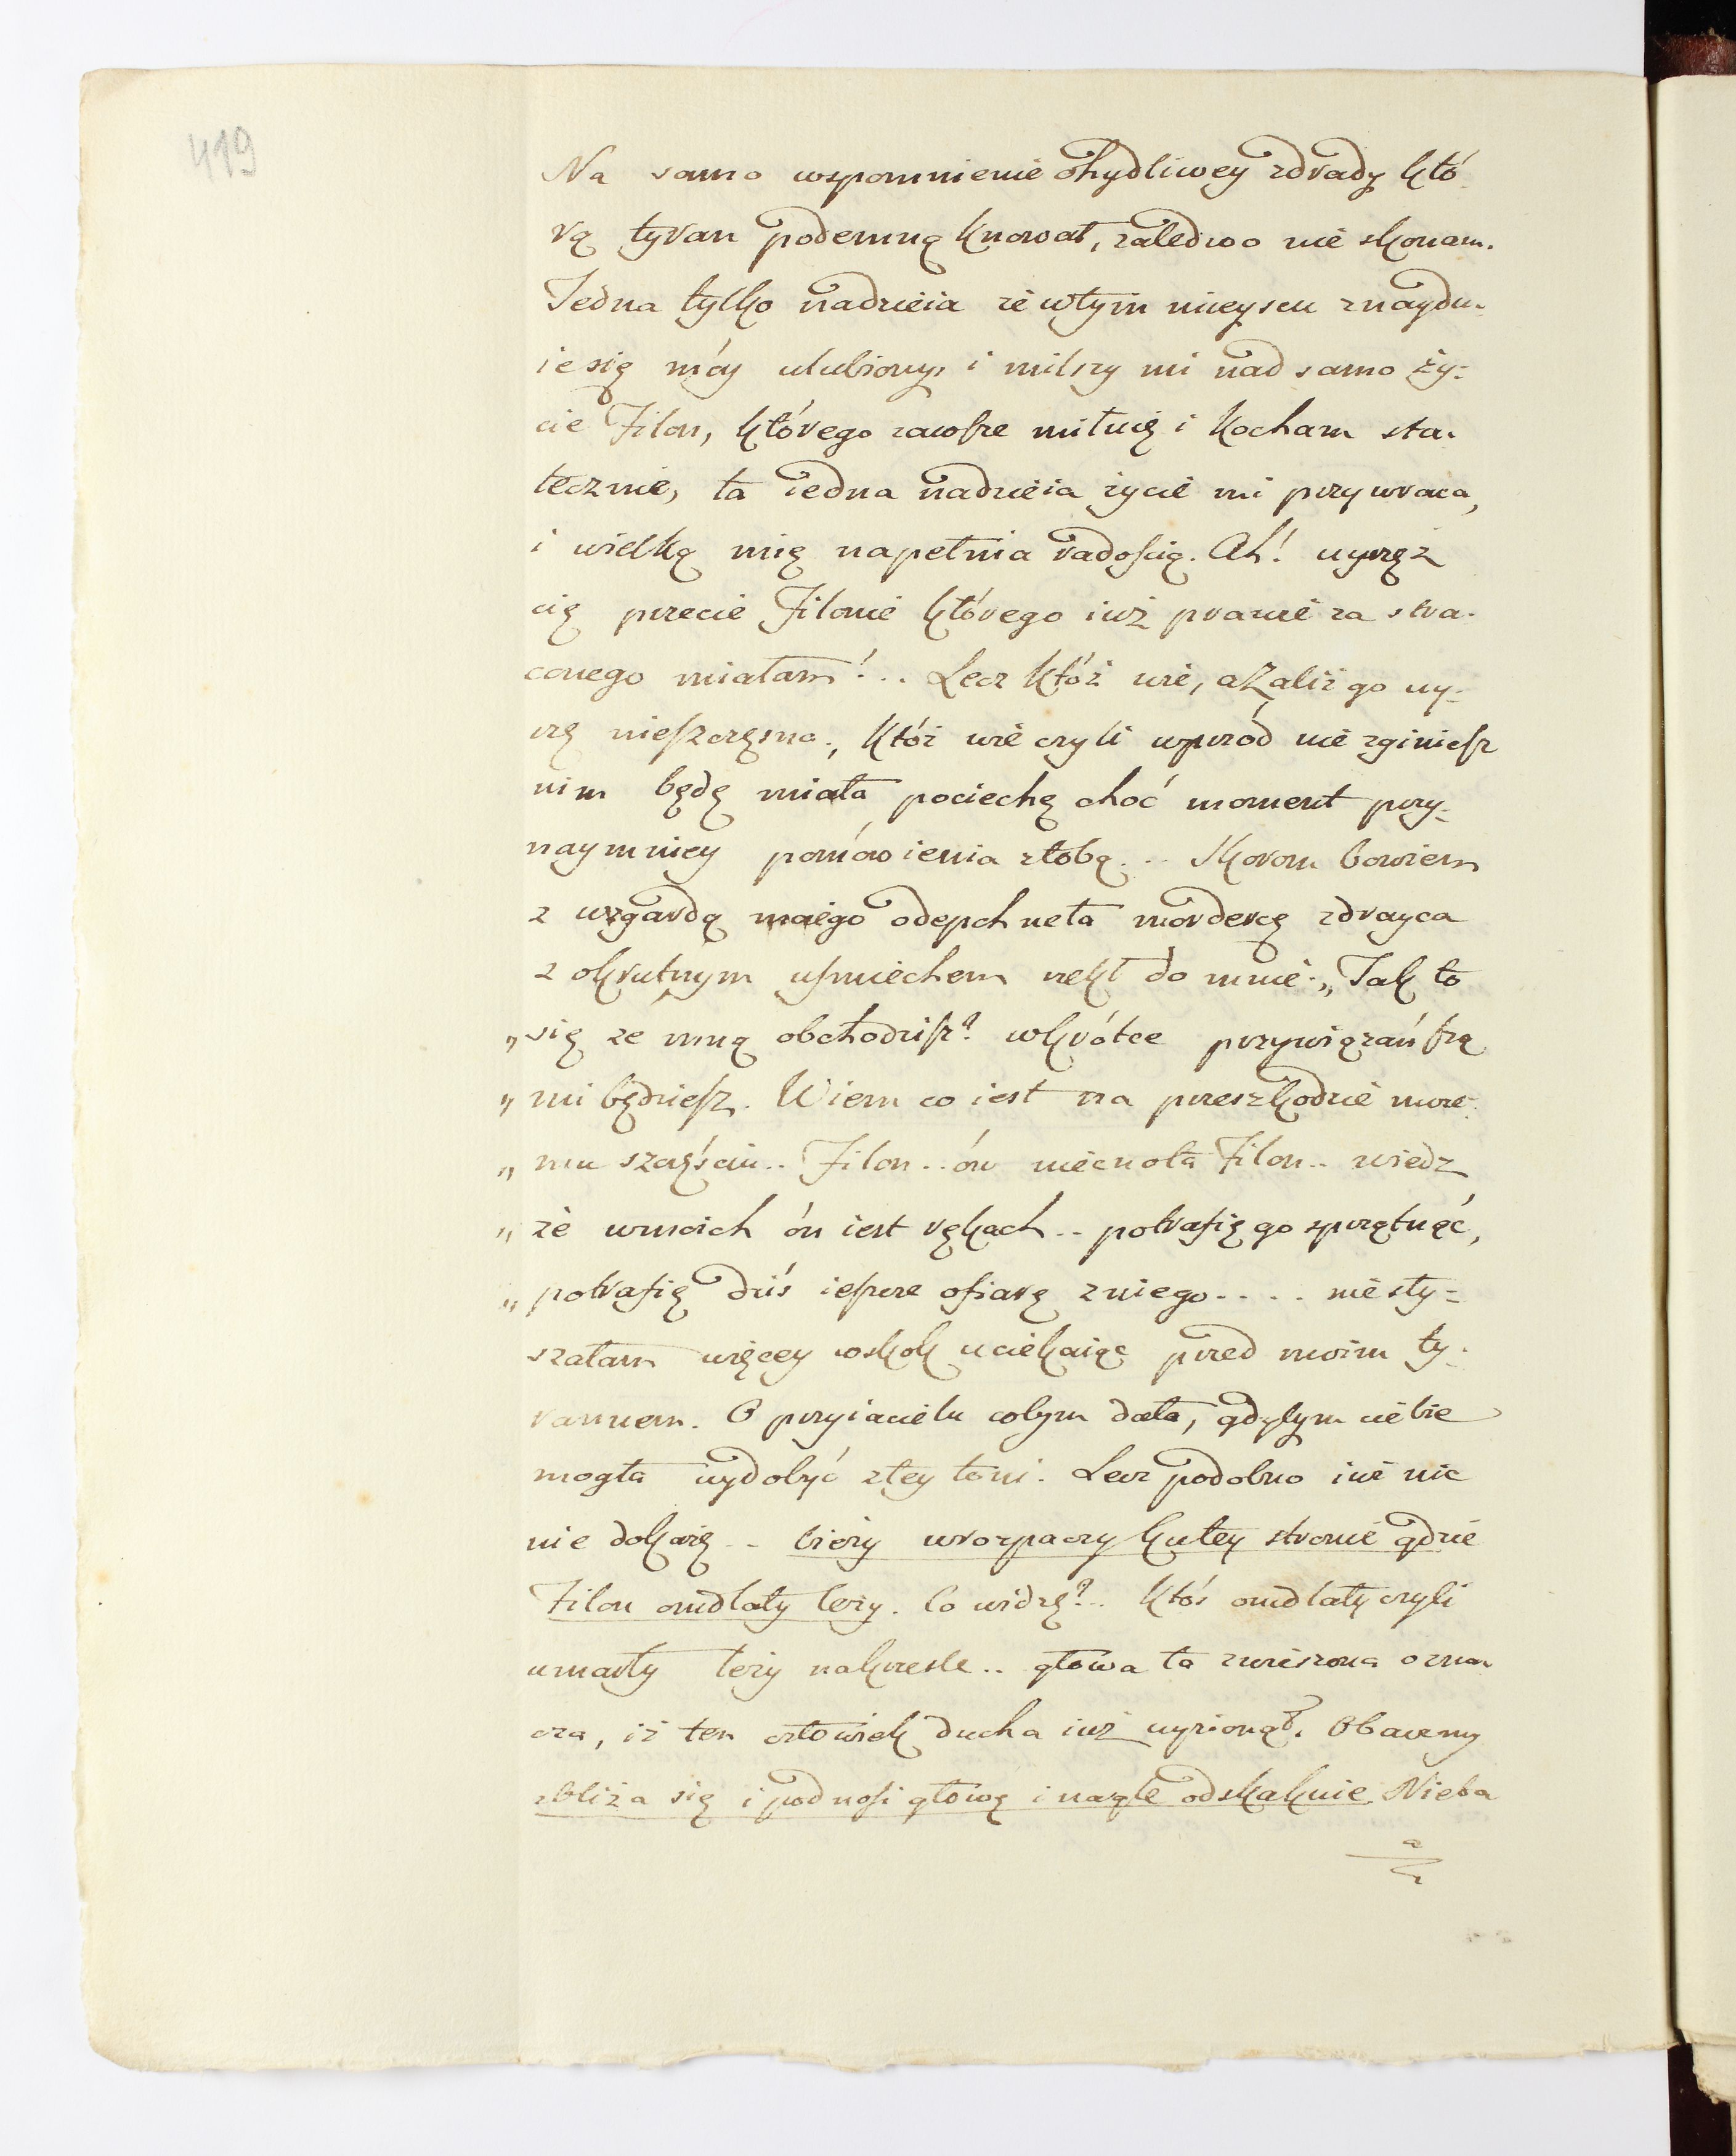 419
Na samo wspomnienie ohydliwey zdrady któ
rą tyran podemną knował, zaledwo nie skonam.
Jedna tylko nadzieia że wtym mieyscu znaydu-
ie się móy ulubiony, i milszy mi nad samo ży=
cie Filon, którego zawsze miłuię i kocham sta-
tecznie, ta iedna nadzieia życie mi przywraca,
i wielką mię napełnia radością. Ah! uyrzęż
cię przecie Filonie którego iuż prawie za stra-
conego miałam!.. Lecz któż wie, aZaliż go uy=
rzę nieszczęsna, któż wie czyli wprzód nie zginiesz
nim będę miała pociechę choć moment przy=
naymniey pomówienia ztobą... Skorom bowiem
z wzgardą moiego odepchneła mordercę zdrayca
z okrutnym uśmiechem rzekł do mnie: „Tak to
„się ze mną obchodzisz? wkrótce przywiązańszą
„mi będziesz. Wiem co iest na przeszkodzie moie=
„mu szczęściu.. Filon.. ów niecnota Filon.. wiedz
„że wmoich ón iest rękach.. potrafię go sprzątnąć,
„potrafię dziś ieszcze ofiarę zniego.... nie sły=
szałam więcey wskok uciekaiąc przed moim ty=
rannem. O przyiacielu cobym dała, gdybym ciebie
mogła wydobyć ztey toni. Lecz podobno iuż nic
nie dokażę.. bieży wrozpaczy kutey stronie gdzie
Filon omdlały leży. Co widzę?.. Ktoś omdlały czyli
umarły leży nakrześle.. głowa ta zwieszona ozna-
cza, iż ten człowiek ducha iuż wyzionął. Obaczmy
zbliża się i podnosi głowę i nagle odskakuie. Nieba